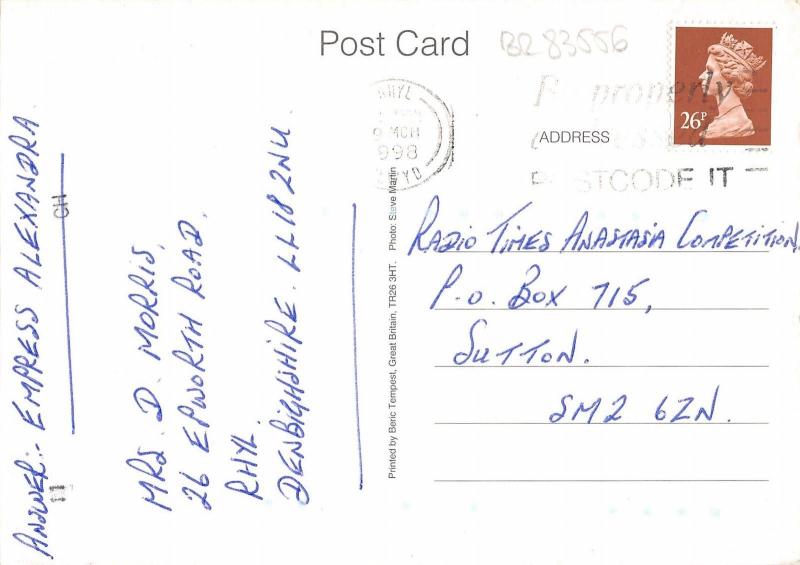 Post Card
BR83556
RHYL
9 MCH
1998
26P
Be properly
ADDRESS
POSTCODE IT
ANSWER:- EMPRESS ALEXANDRA.
MRS. D. MORRIS,
26 EPWORTH ROAD.
RHYL.
DENBIGHSHIRE. LL18 2NU.
Printed by Beric Tempest, Great Britain, TR26 3HT. Photo: Steve Martin
RADIO TIMES ANASTASIA COMPETITION,
P.O. BOX 715,
SUTTON.
SM2 6ZN.